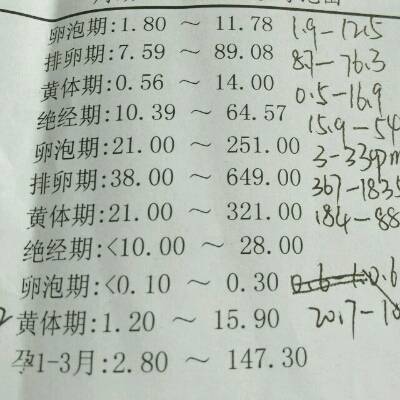 卵泡期:1.80 ～ 11.78 1.9-12.5
排卵期:7.59 ～ 89.08 8.7-76.3
黄体期:0.56 ～ 14.00 0.5-16.9
绝经期:10.39 ～ 64.57 15.9-54
卵泡期:21.00 ～ 251.00 3-33
排卵期:38.00 ～ 649.00 367-1835
黄体期:21.00 ～ 321.00 184-88
绝经期:<10.00 ～ 28.00
卵泡期:<0.10 ～ 0.30 0.6
黄体期:1.20 ～ 15.90 20.7-10
孕1-3月:2.80 ～ 147.30